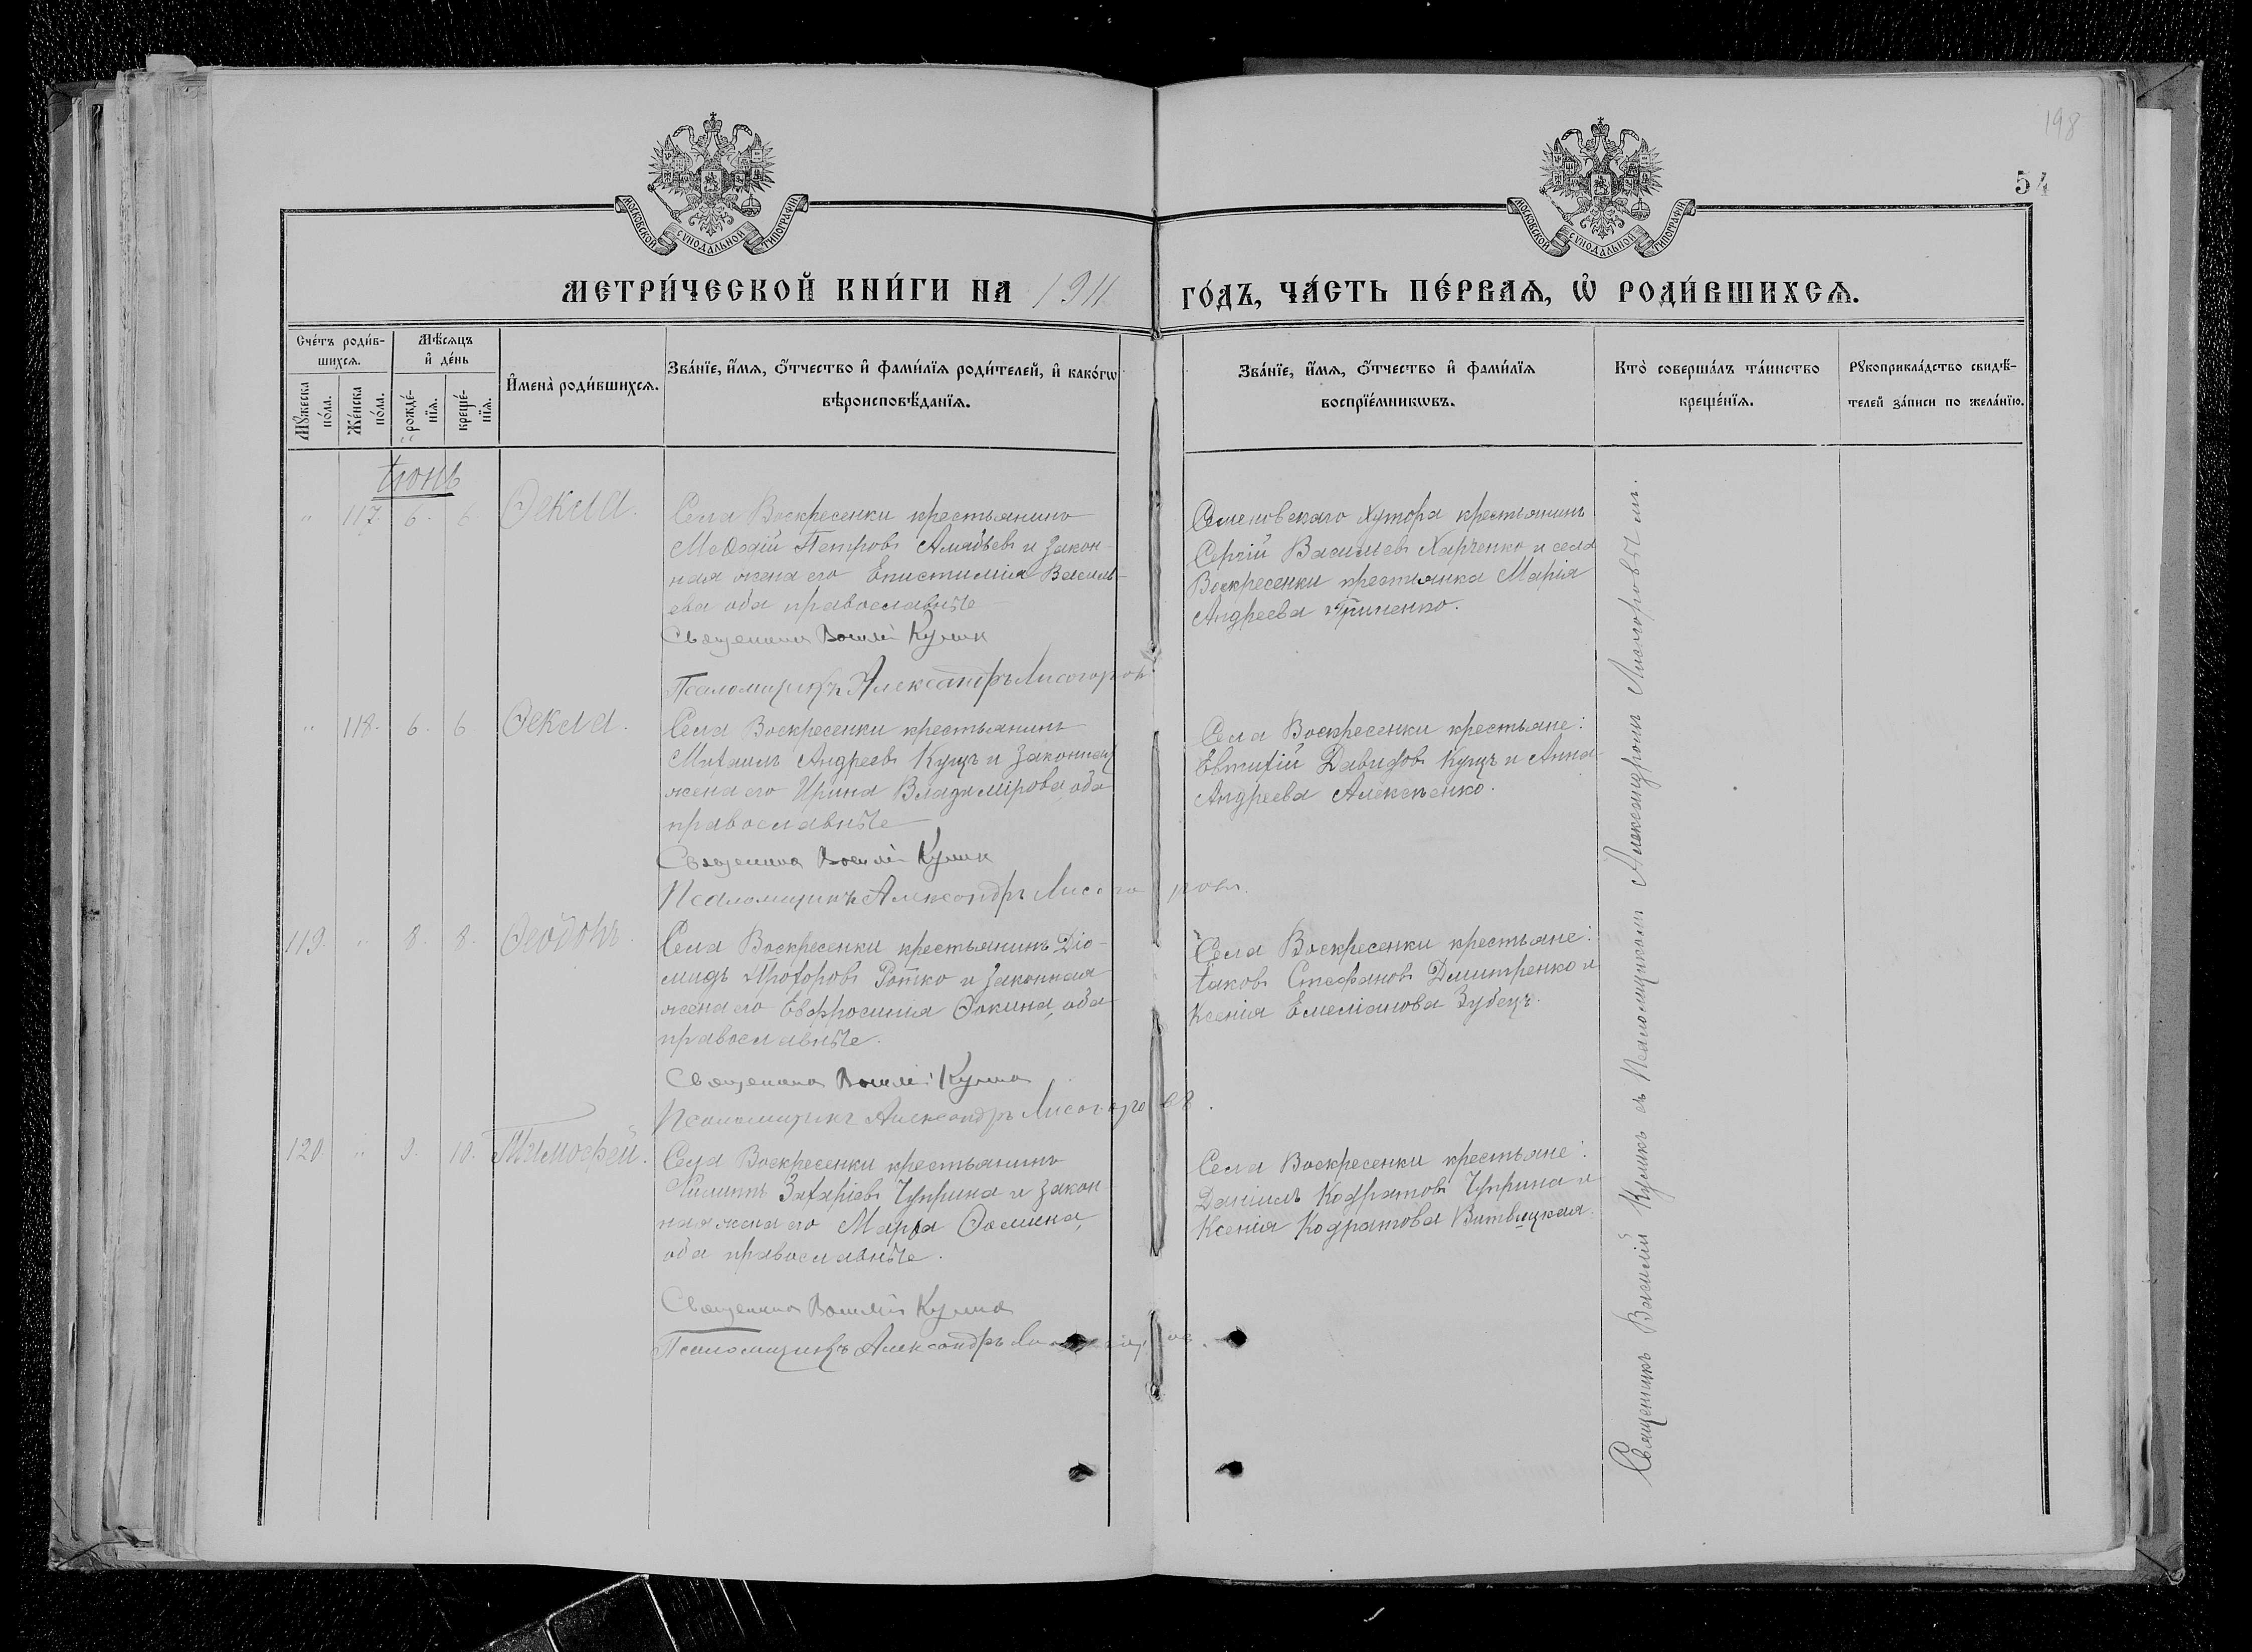 198
54
МОСКОВСКОЙ СѴНОДАЛЬНОЙ ТИПОГРАФІИ
МОСКОВСКОЙ СѴНОДАЛЬНОЙ ТИПОГРАФІИ
МЕТРИ́ЧЕСКОЙ КНИ́ГИ НА 1911 ГО́ДЪ, ЧА́СТЬ ПЕ́РВАѦ, Ѡ҆ РОДИ́ВШИХСѦ.
Сче́тъ роди́в-
шихсѧ.
Мꙋ́жеска по́ла.
Же́нска по́ла.
Мѣ́сяцъ
и҆ де́нь
рожде́-
нїѧ.
креще́-
нїѧ.
И҆мена̀ роди́вшихсѧ.
Зва́нїе, и҆́мѧ, ѻ҆́тчество и҆ фами́лїѧ роди́телей, и҆ како́гѡ
вѣроисповѣ́данїѧ.
Зва́нїе, и҆́мѧ, ѻ҆́тчество и҆ фами́лїѧ
воспрїе́мникѡвъ.
Кто̀ соверша́лъ та́инство
креще́нїѧ.
Рꙋкоприкла́дство свидѣ́-
телей за́писи по жела́нїю.
Іюнь
" 117. 6. 6. Ѳекла.
Села Воскресенки крестьянинъ
Меѳодій Петровъ и закон-
ная жена его Епистимія Василь-
ева оба православные
Священникъ Василій Куликъ
Псаломщикъ Александръ Лисогоровъ
Семеновскаго хутора крестьянинъ
Сергій Васильевъ Харченко и села
Воскресенки крестьянка Марія
Андреева Гриненко.
" 118. 6. 6 Ѳекла.
Села Воскресенки крестьянинъ
Михаилъ Андреевъ Куцъ и законная
жена его Ирина Владимірова, оба
православные
Священникъ Василій Куликъ
Псаломщикъ Александръ Лисогоровъ.
Села Воскресенки крестьяне:
Евтихій Давидовъ Куцъ и Анна
Андреева Алексеенко.
119. " 8. 8. Ѳеодоръ.
Села Воскресенки крестьянинъ Діо-
мидъ Прохоровъ и законная
жена его Евфросинія Фокина, оба
православные.
Священникъ Василій Куликъ
Псаломщикъ Александръ Лисогоровъ.
Села Воскресенки крестьяне:
Іаковъ Стефановъ Дмитренко и
Ксенія Емеліанова Зубецъ.
120 " 9. 10. Тимофей.
Села Воскресенки крестьянинъ
Филиппъ Захаріевъ Чуприна и закон-
ная жена его Марѳа Фомина,
оба православные.
Священникъ Василій Куликъ
Псаломщикъ Александръ Лисогоровъ.
Села Воскресенки крестьяне:
Даніилъ Кодратовъ Чуприна и
Ксенія Кодратова Витвицкая.
Священникъ Василій Куликъ съ Псаломщикомъ Александромъ Лисогоровымъ.